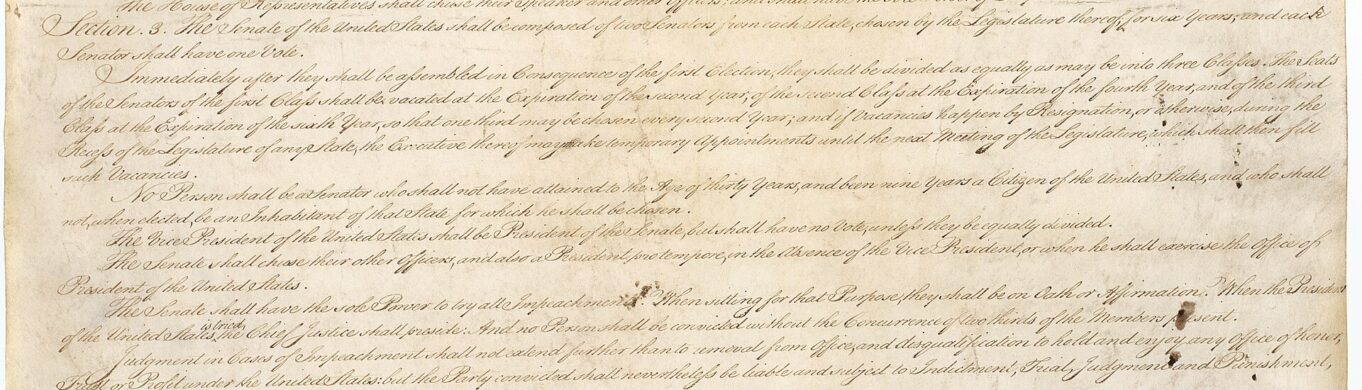 The House of Representatives shall chuse their Speaker and other Officers; and shall have the
Section. 3. The Senate of the United States shall be composed of two Senators from each State, chosen by the Legislature thereof, for six Years; and each
Senator shall have one Vote.
Immediately after they shall be assembled in Consequence of the first Election, they shall be divided as equally as may be into three Classes. The Seats
of the Senators of the first Class shall be vacated at the Expiration of the second Year, of the second Class at the Expiration of the fourth Year, and of the third
Class at the Expiration of the sixth Year, so that one third may be chosen every second Year; and if Vacancies happen by Resignation, or otherwise, during the
Recess of the Legislature of any State, the Executive thereof may make temporary Appointments until the next Meeting of the Legislature, which shall then fill
such Vacancies.
No Person shall be a Senator who shall not have attained to the Age of thirty Years, and been nine Years a Citizen of the United States, and who shall
not, when elected, be an Inhabitant of that State for which he shall be chosen.
The Vice President of the United States shall be President of the Senate, but shall have no Vote, unless they be equally divided.
The Senate shall chuse their other Officers, and also a President pro tempore, in the Absence of the Vice President, or when he shall exercise the Office of
President of the United States.
The Senate shall have the sole Power to try all Impeachments. When sitting for that Purpose, they shall be on Oath or Affirmation. When the President
of the United States is tried, the Chief Justice shall preside: And no Person shall be convicted without the Concurrence of two thirds of the Members present.
Judgment in Cases of Impeachment shall not extend further than to removal from Office, and disqualification to hold and enjoy any Office of honor,
Trust or Profit under the United States: but the Party convicted shall nevertheless be liable and subject to Indictment, Trial, Judgment and Punishment,